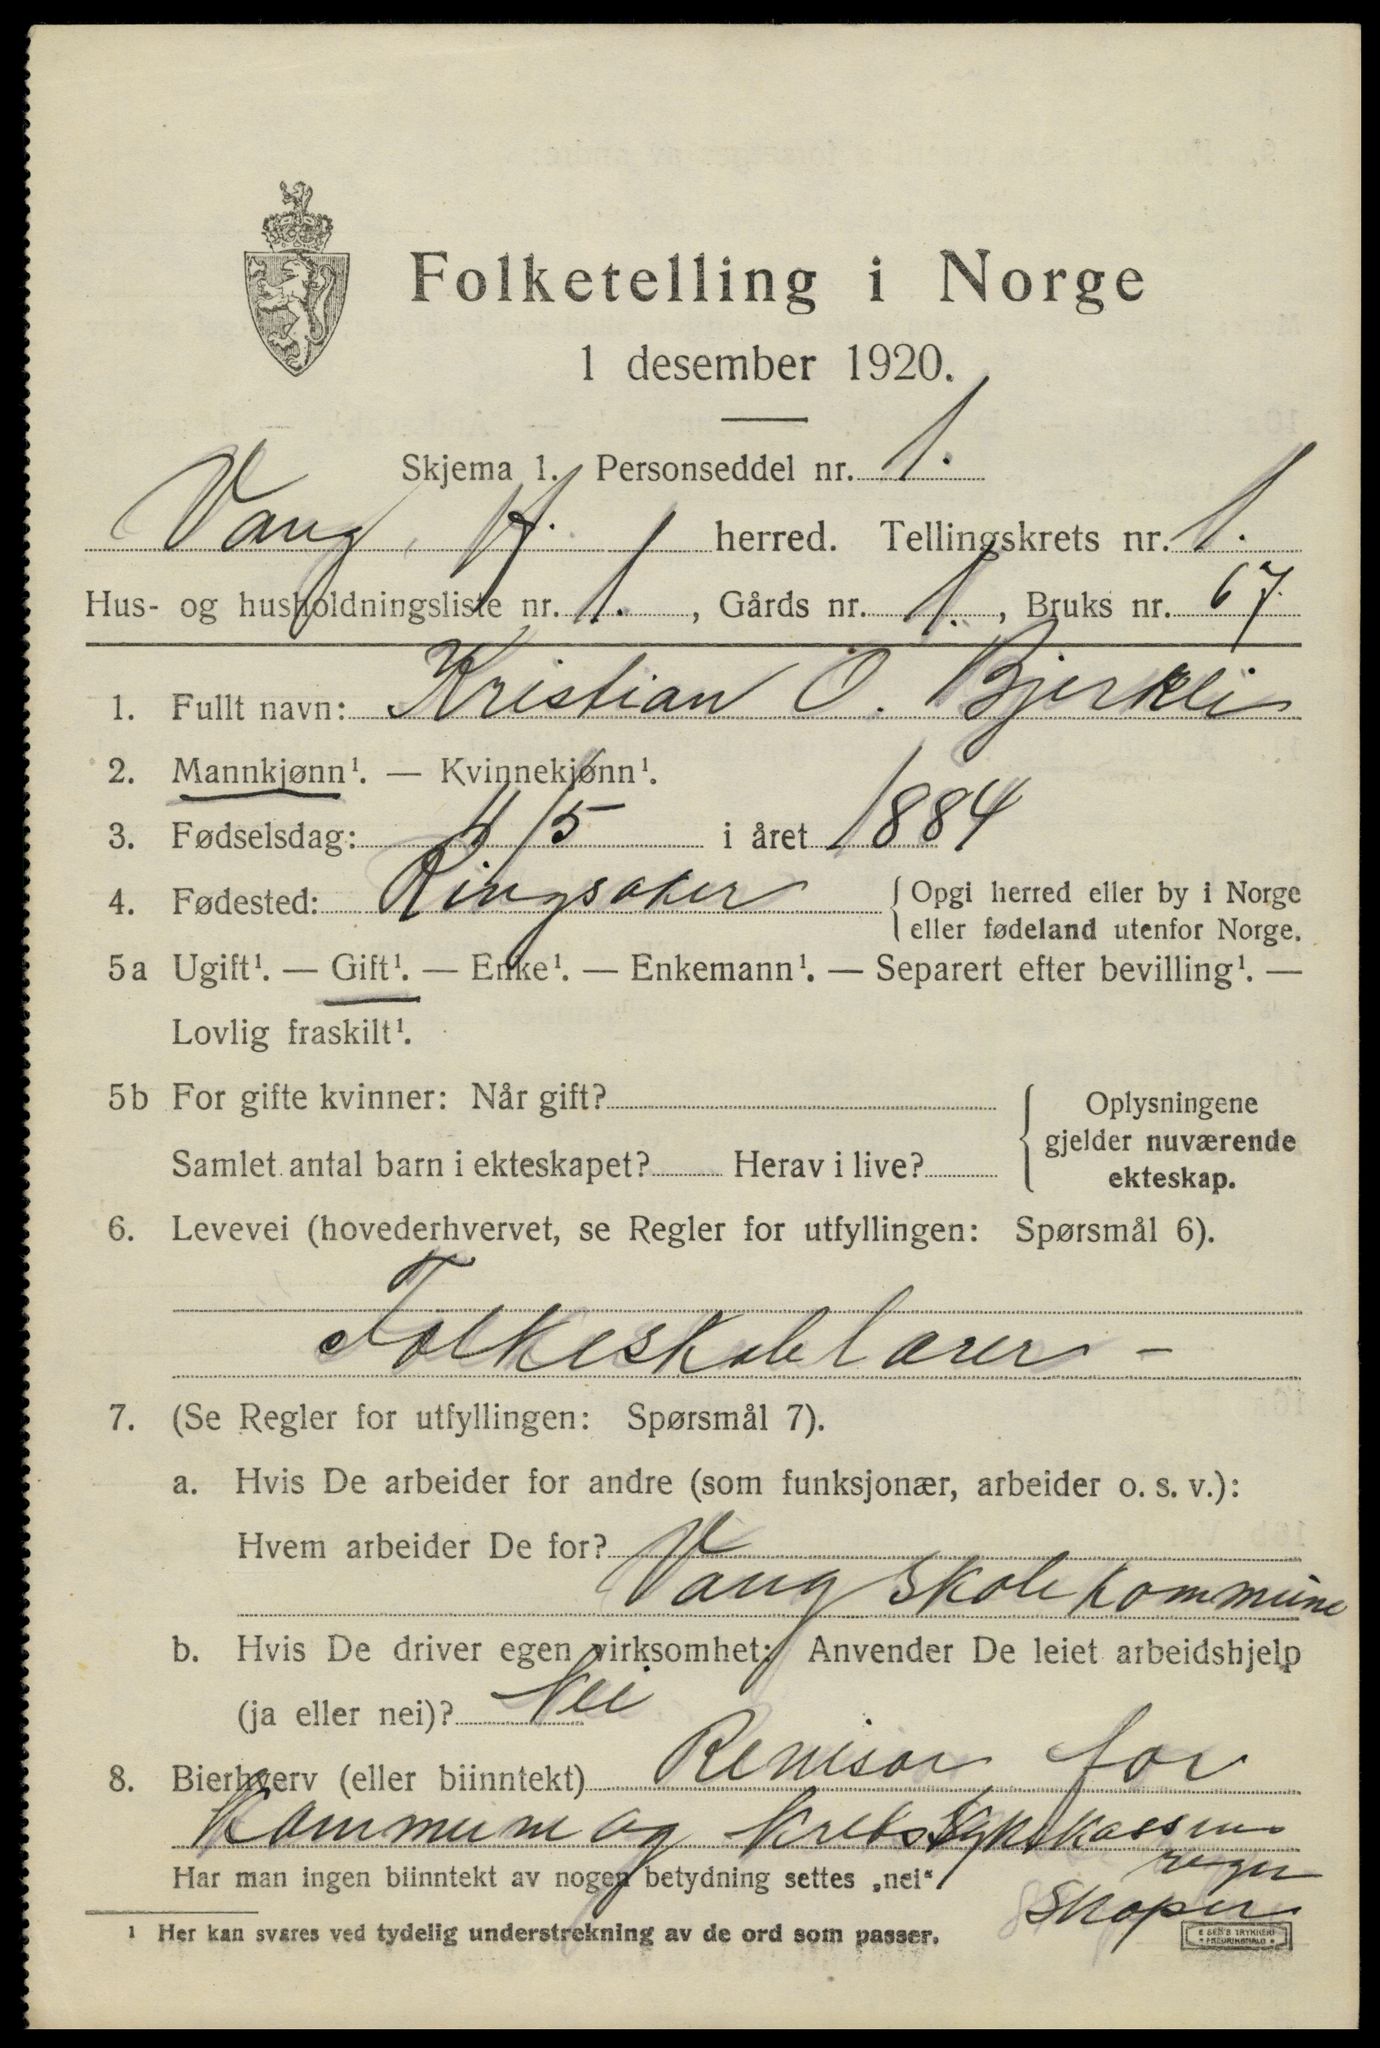 Folketelling i Norge
1 desember 1920.
Skjema 1. Personseddel nr. 1.
Vang, H. herred. Tellingskrets nr. 1.
Hus- og husholdningsliste nr. 1., Gårds nr. 1., Bruks nr. 67
1. Fullt navn: Kristian O. Bjerkli
2. Mannkjønn¹. — Kvinnekjønn¹.
3. Fødselsdag: 4/5 i året 1884
4. Fødested: Ringsaker { Opgi herred eller by i Norge
eller fødeland utenfor Norge.
5a Ugift¹. — Gift¹. — Enke¹. — Enkemann¹. — Separert efter bevilling¹. —
Lovlig fraskilt¹.
5b For gifte kvinner: Når gift?
Samlet antal barn i ekteskapet? Herav i live?
{ Oplysningene
gjelder nuværende
ekteskap.
6. Levevei (hovederhvervet, se Regler for utfyllingen: Spørsmål 6).
Folkeskolelærer -
7. (Se Regler for utfyllingen: Spørsmål 7).
a. Hvis De arbeider for andre (som funksjonær, arbeider o. s. v.):
Hvem arbeider De for?
Vang skolekommune
b. Hvis De driver egen virksomhet: Anvender De leiet arbeidshjelp
(ja eller nei)? Nei
8. Bierhverv (eller biinntekt) Revisor for
Kommune og kredssykekassens
regn
skaper
Har man ingen biinntekt av nogen betydning settes „nei“
¹ Her kan svares ved tydelig understrekning av de ord som passer.